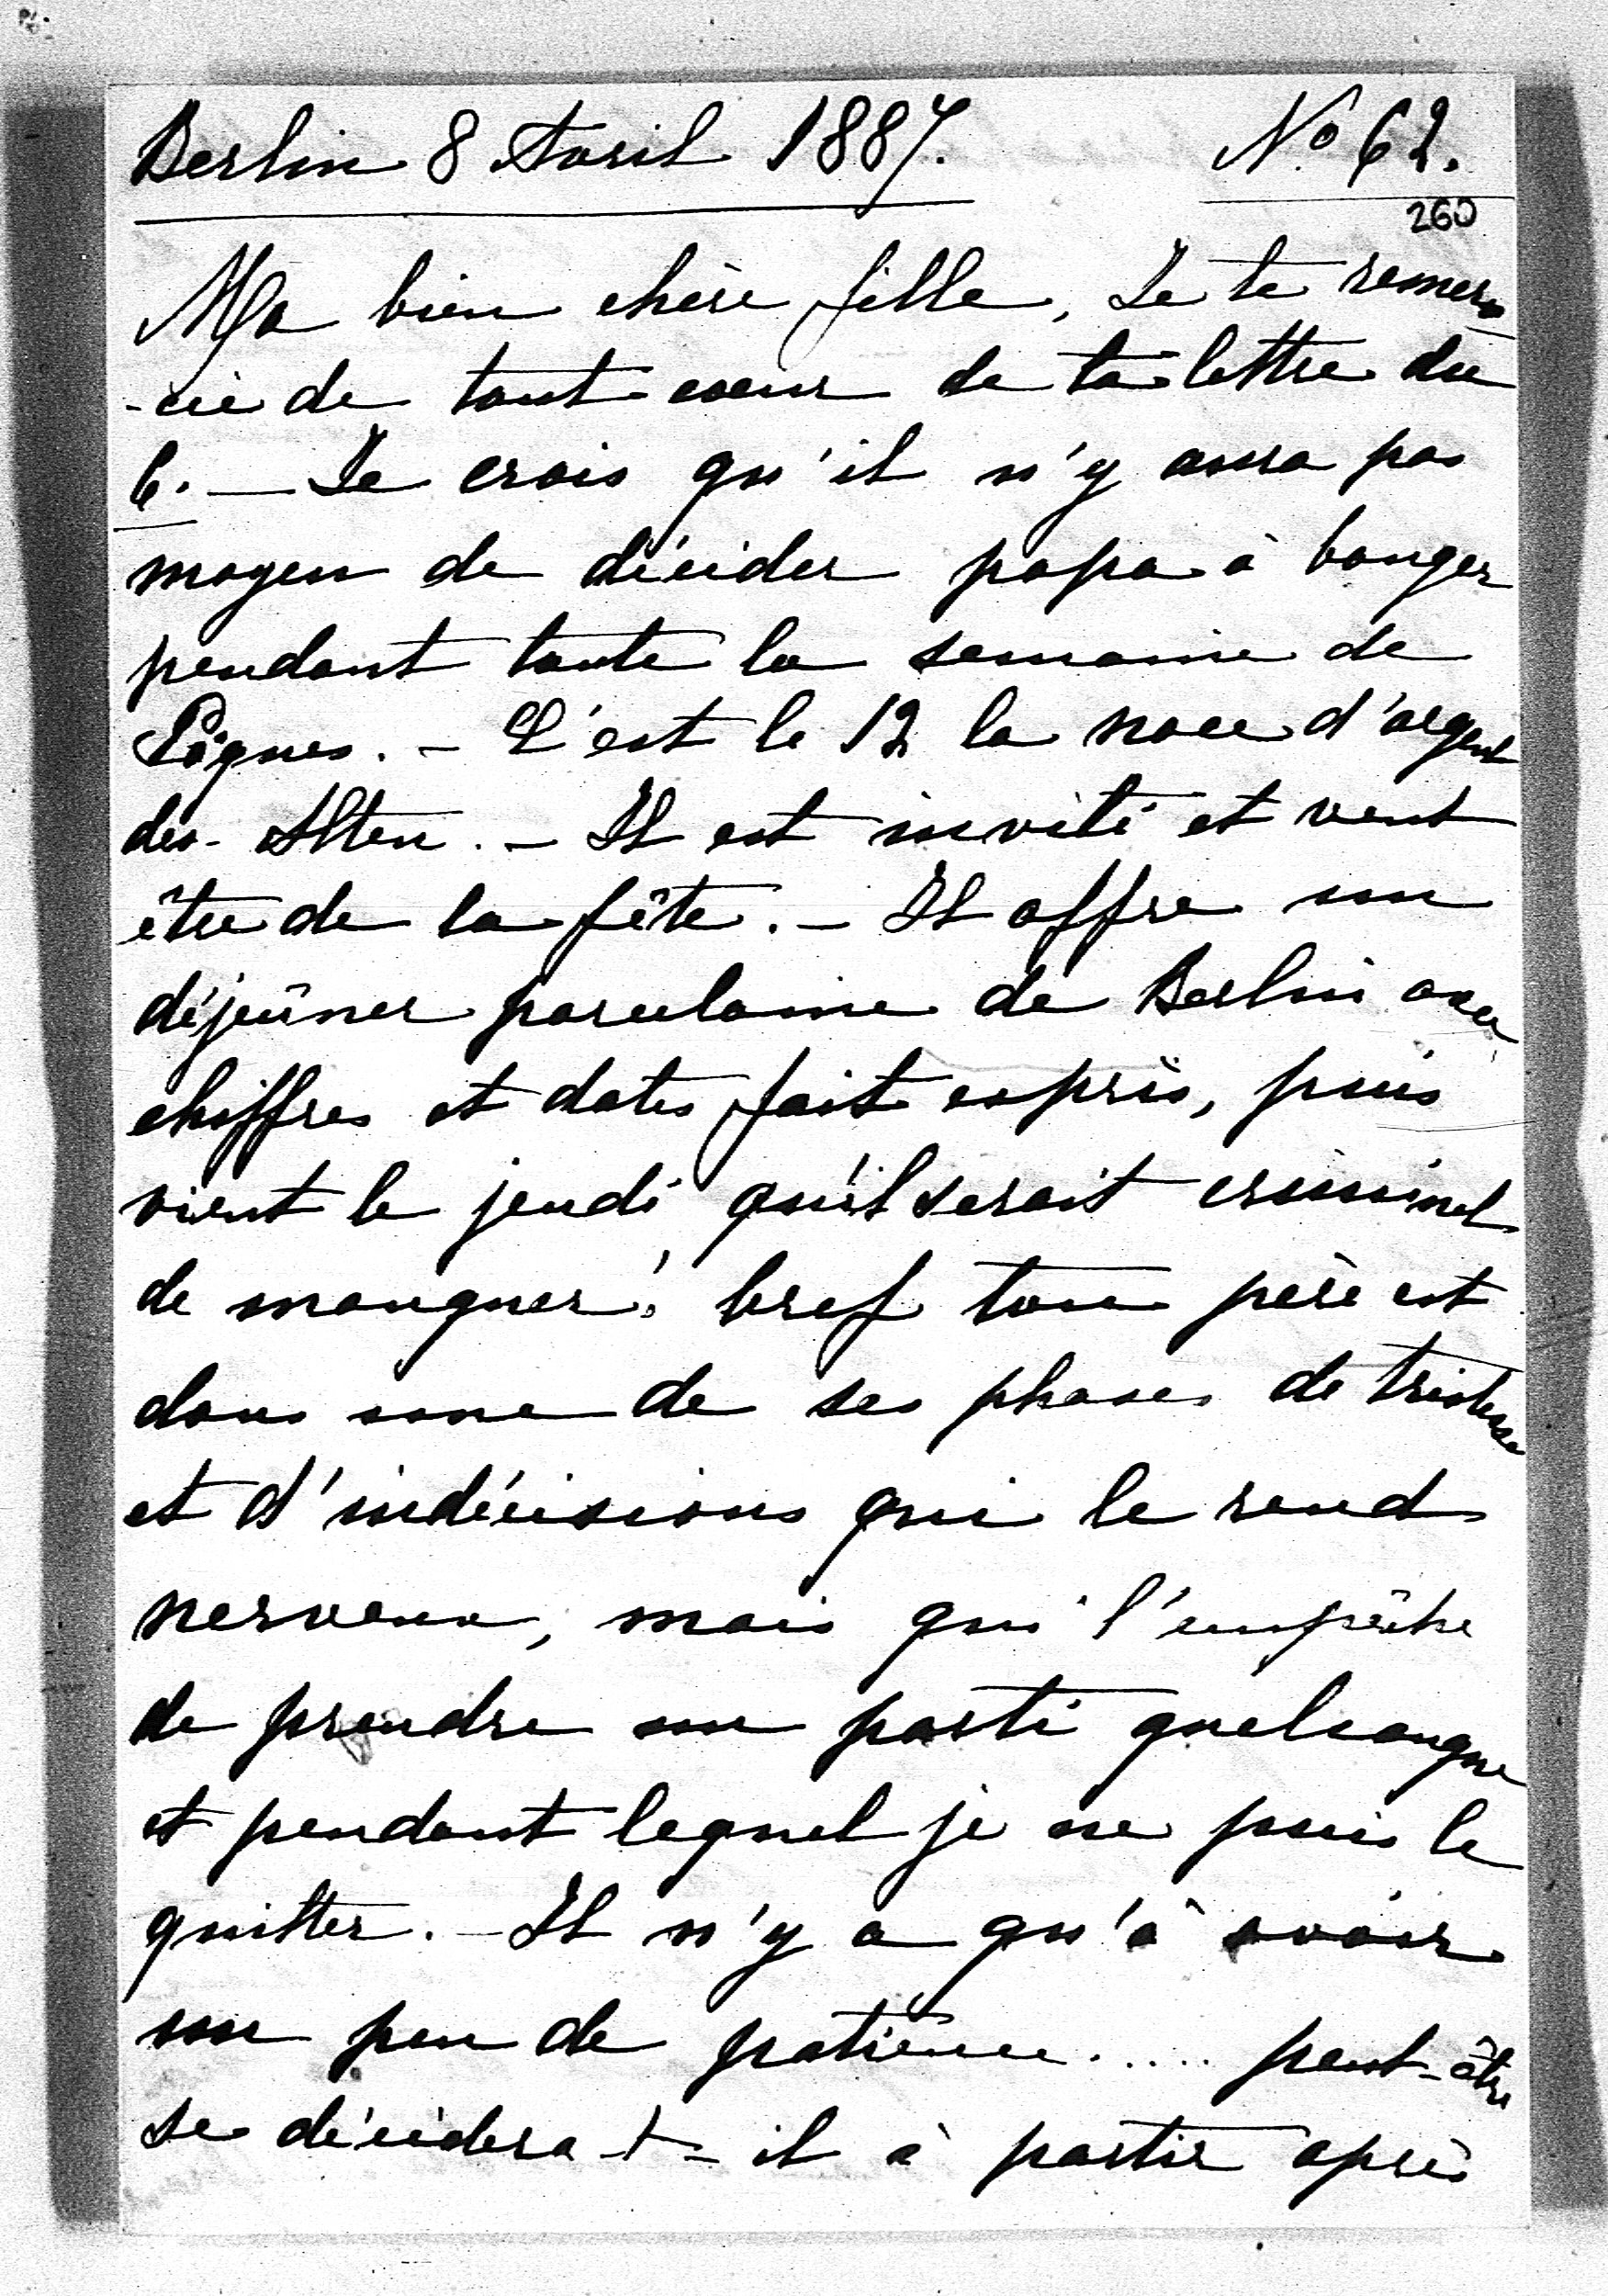 Berlin 8 Avril 1887. No 62.
260
Ma bien chère fille, Je te remer-
-cie de tout coeur de ta lettre du
6. — Je crois qu'il n'y aura pas
moyen de décider papa à bouger
pendant toute la semaine de
Pâques. - C'est le 12 la noce d'argent
des Alten. - Il est invité et veut
être de la fête. - Il offre un
déjeûner porcelaine de Berlin avec
chiffres et dates fait exprès, puis
vient le jeudi qu'il serait criminel
de manquer! bref ton père est
dans une de ses phases de tristesse
et d'indécisions qui le rend
nerveux, mais qui l'empêche
de prendre un parti quelconque
et pendant lequel je ne puis le
quitter. - Il n'y a qu'à avoir
un peu de patience..... peut-être
se décidera-t-il à partir après